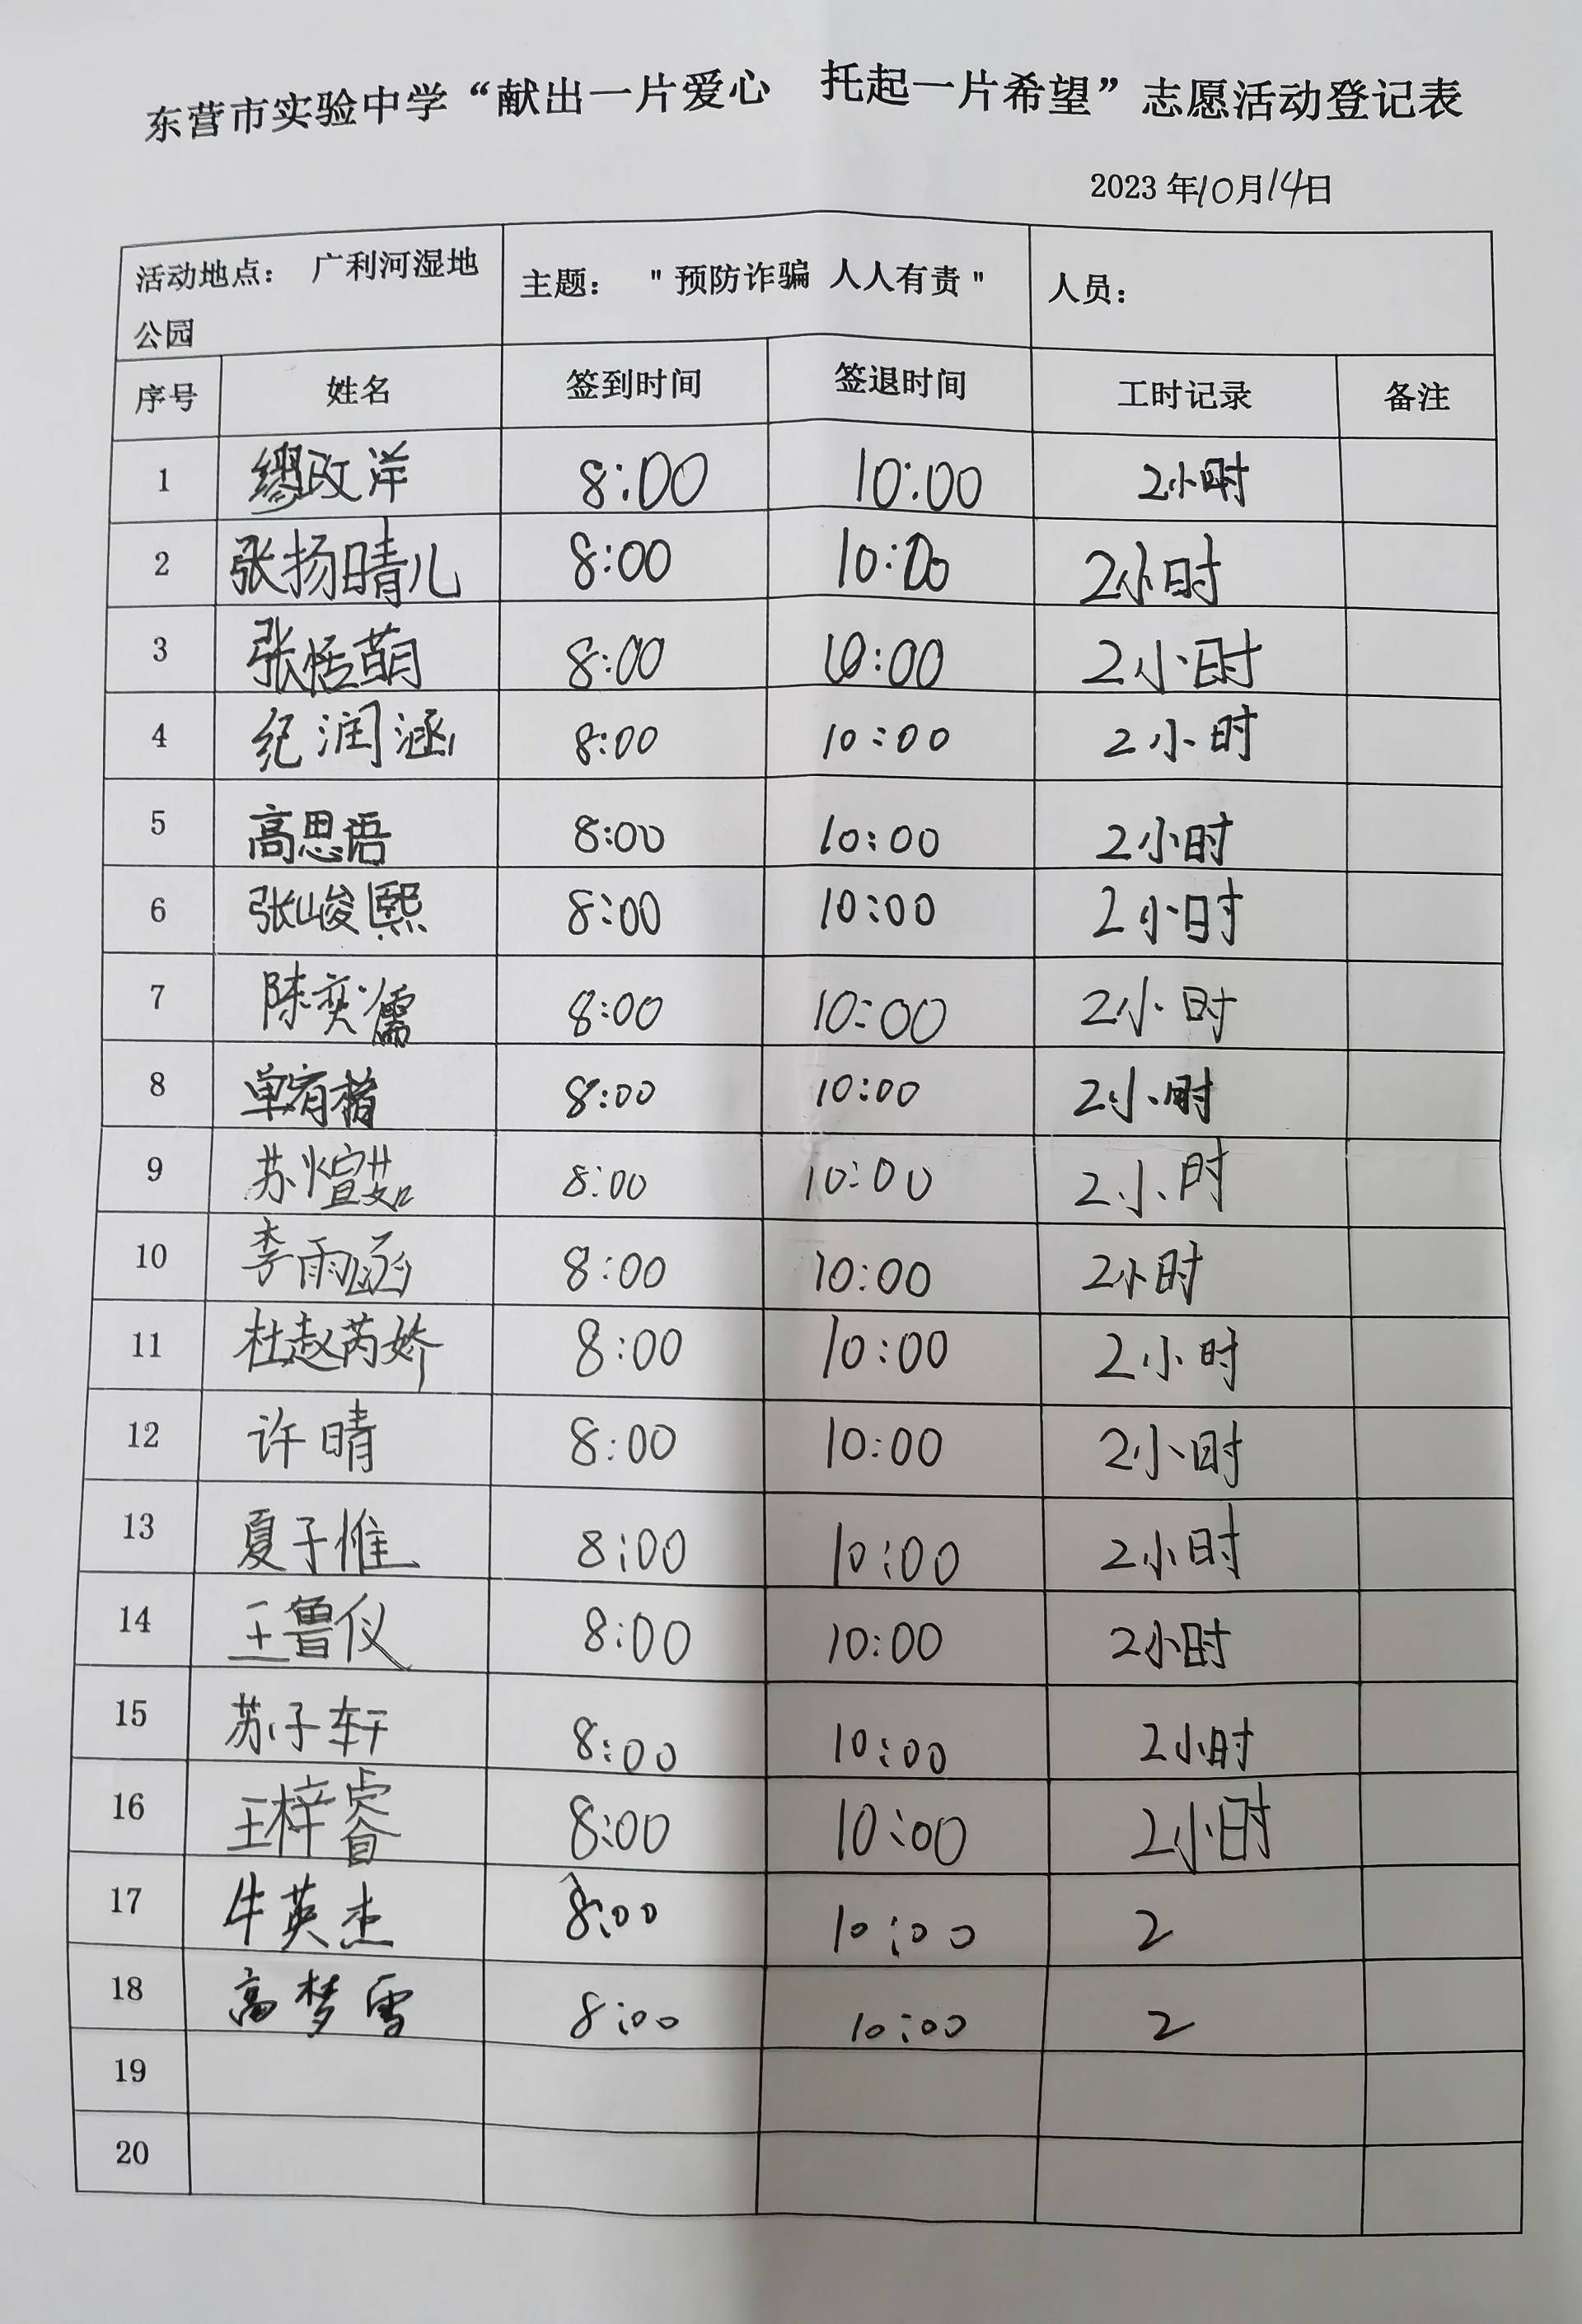 东营市实验中学“献出一片爱心 托起一片希望”志愿活动登记表
2023年10月14日
活动地点： 广利河湿地公园 主题： "预防诈骗 人人有责" 人员：
序号 姓名 签到时间 签退时间 工时记录 备注
1 缪政洋 8:00 10:00 2小时
2 张扬晴儿 8:00 10:00 2小时
3 张恬萌 8:00 10:00 2小时
4 纪润涵 8:00 10:00 2小时
5 高思语 8:00 10:00 2小时
6 张峻熙 8:00 10:00 2小时
7 陈奕儒 8:00 10:00 2小时
8 8:00 10:00 2小时
9 苏愃茹 8:00 10:00 2小时
10 李雨函 8:00 10:00 2小时
11 杜赵芮娇 8:00 10:00 2小时
12 许晴 8:00 10:00 2小时
13 夏子惟 8:00 10:00 2小时
14 王鲁仪 8:00 10:00 2小时
15 苏子轩 8:00 10:00 2小时
16 王梓睿 8:00 10:00 2小时
17 牛英杰 8:00 10:00 2
18 高梦雪 8:00 10:00 2
19
20